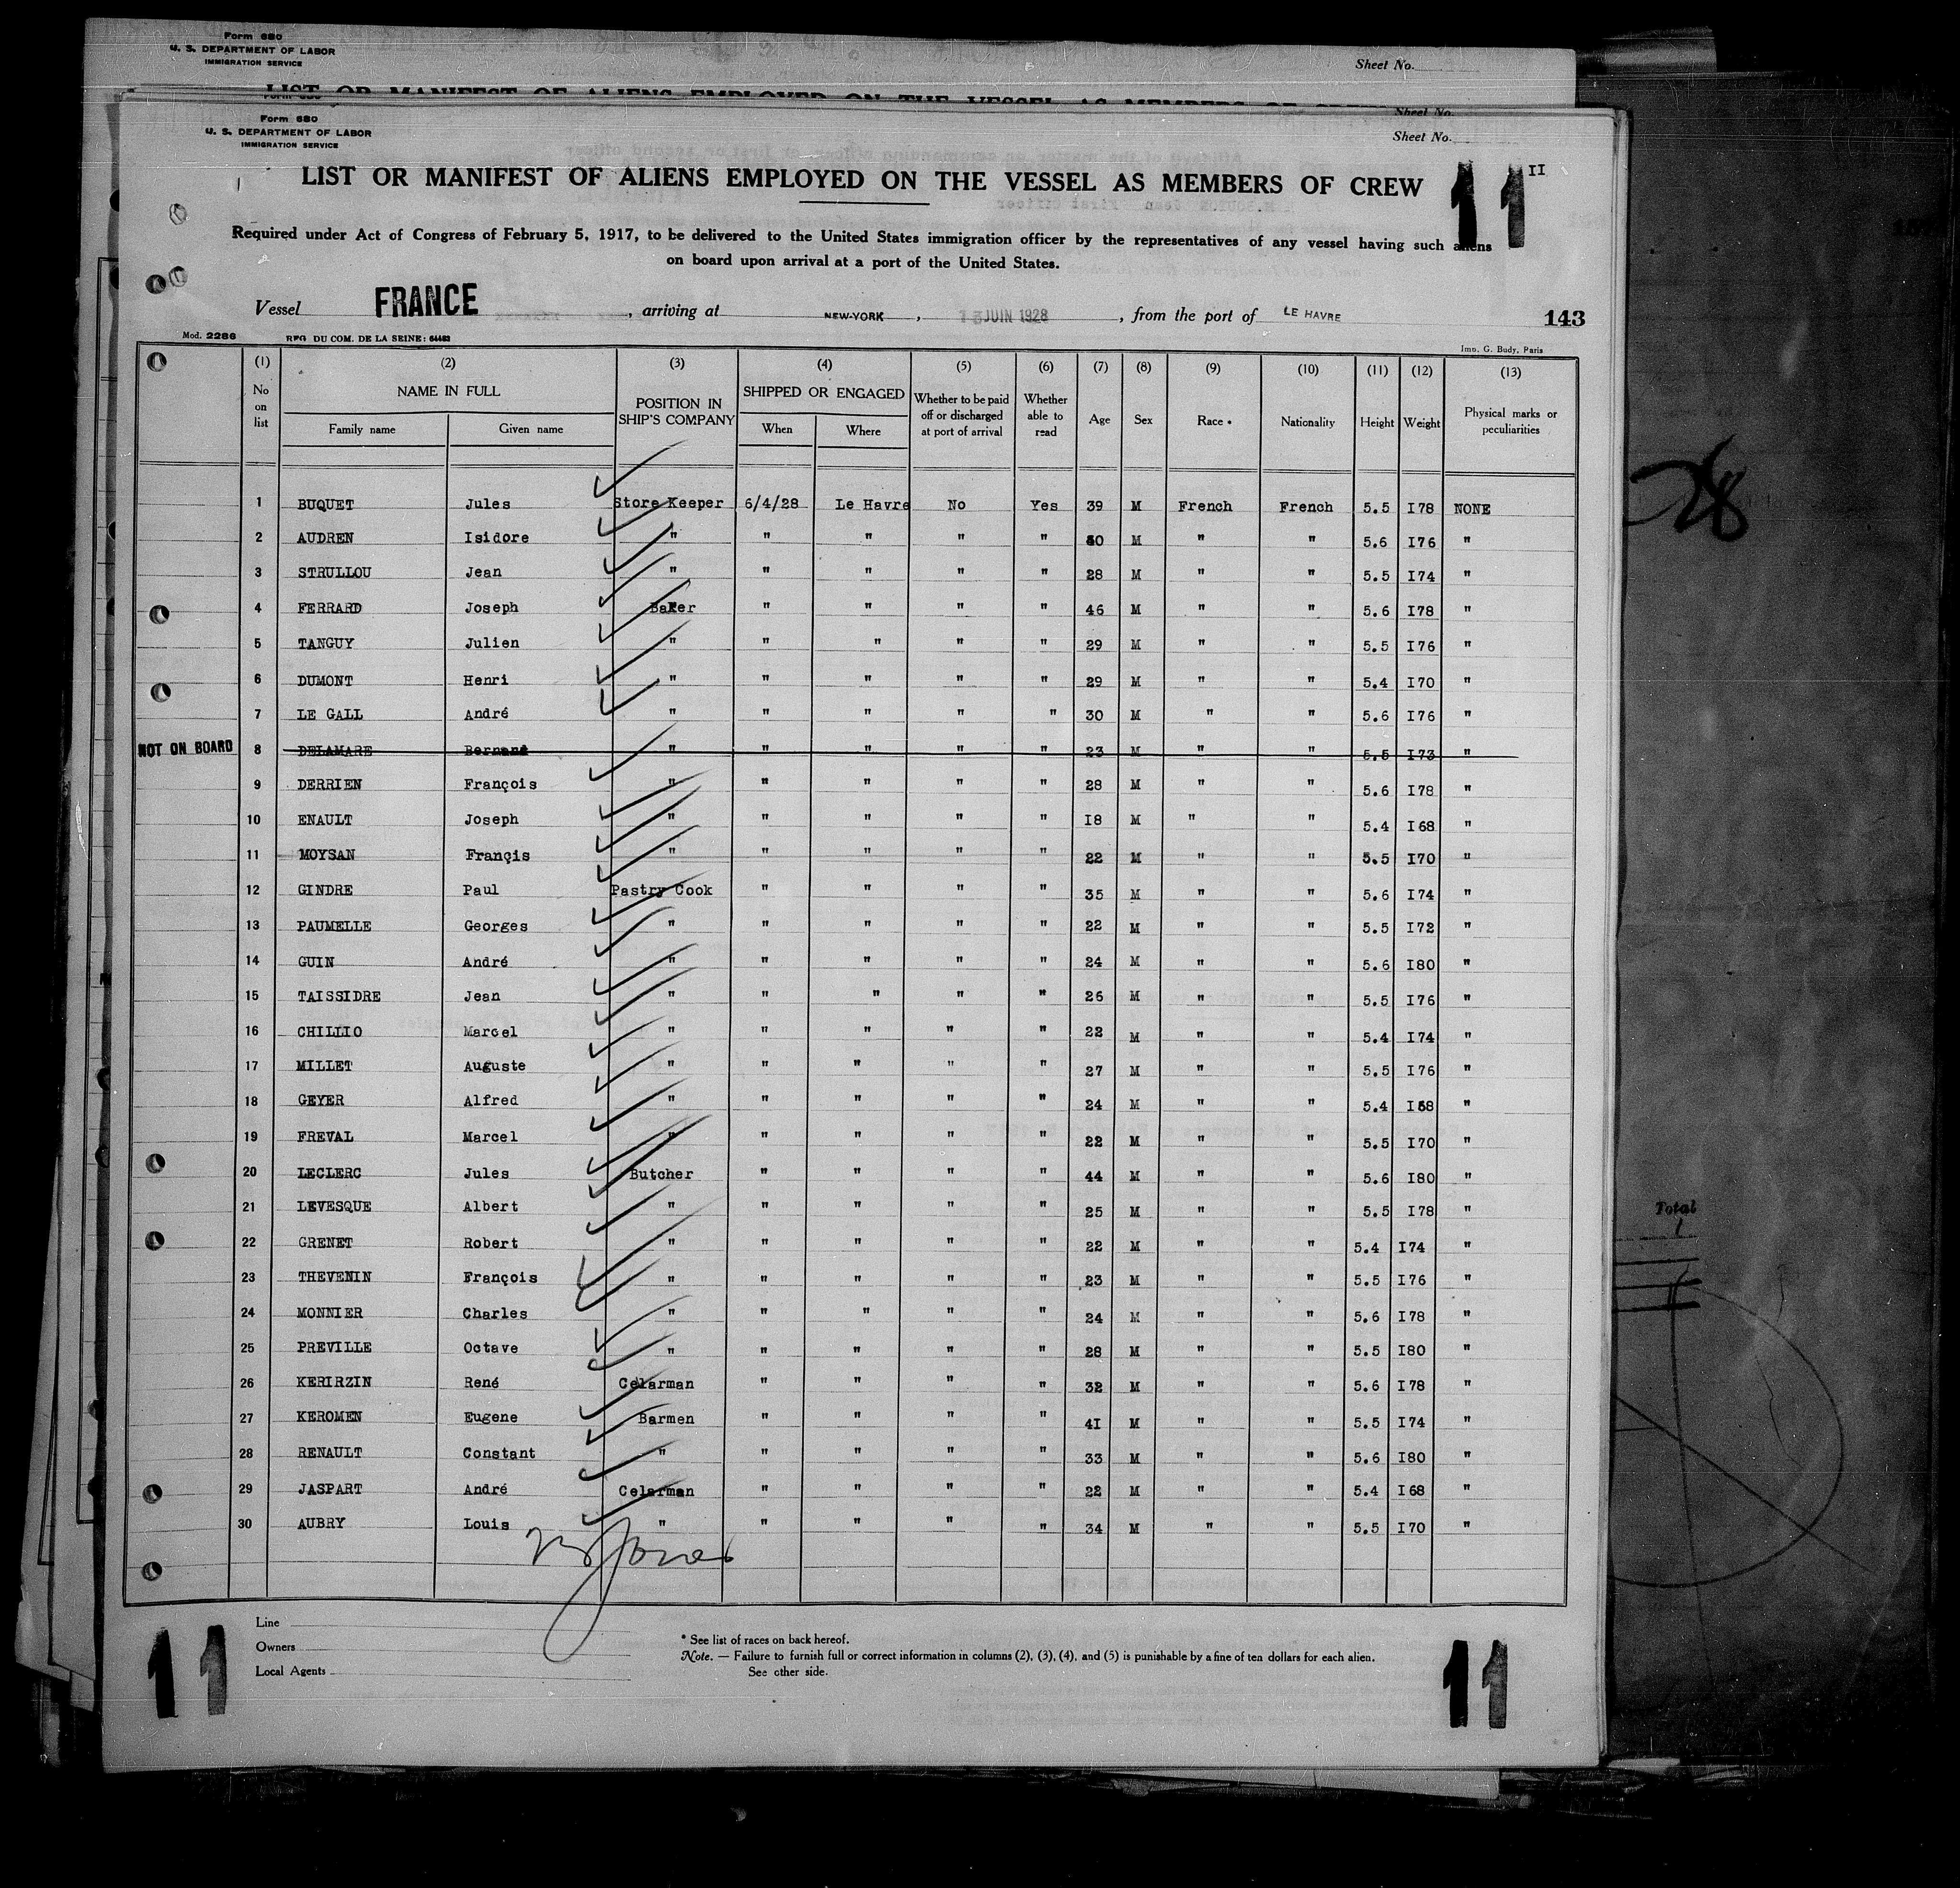 Form 680
U. S. DEPARTMENT OF LABOR
IMMIGRATION SERVICE
Sheet No.
LIST OR MANIFEST OF ALIENS EMPLOYED ON THE VESSEL AS MEMBERS OF CREW
Sheet No.
Form 680
U. S. DEPARTMENT OF LABOR
IMMIGRATION SERVICE
Sheet No.
LIST OR MANIFEST OF ALIENS EMPLOYED ON THE VESSEL AS MEMBERS OF CREW 11 II
Required under Act of Congress of February 5, 1917, to be delivered to the United States immigration officer by the representatives of any vessel having such aliens
on board upon arrival at a port of the United States.
Vessel FRANCE, arriving at NEW-YORK, 13 JUIN 1928, from the port of LE HAVRE 143
Mod. 2286 REG. DU COM. DE LA SEINE: 64483 Imp. G. Budy, Paris
(1) (2) (3) (4) (5) (6) (7) (8) (9) (10) (11) (12) (13)
No on list NAME IN FULL POSITION IN SHIP'S COMPANY SHIPPED OR ENGAGED Whether to be paid off or discharged at port of arrival Whether able to read Age Sex Race * Nationality Height Weight Physical marks or peculiarities
Family name Given name When Where
1 BUQUET Jules Store Keeper 6/4/28 Le Havre No Yes 39 M French French 5.5 I78 NONE
2 AUDREN Isidore " " " " " M " " 5.6 I76 "
3 STRULLOU Jean " " " " " 28 M " " 5.5 I74 "
4 FERRARD Joseph Baker " " " " 46 M " " 5.6 I78 "
5 TANGUY Julien " " " " " 29 M " " 5.5 I76 "
6 DUMONT Henri " " " " " 29 M " " 5.4 I70 "
7 LE GALL André " " " " " 30 M " " 5.6 I76 "
NOT ON BOARD 8 DELAMARE Bernard " " " " " 23 M " " 5.5 I73 "
9 DERRIEN François " " " " " 28 M " " 5.6 I78 "
10 ENAULT Joseph " " " " " I8 M " " 5.4 I68 "
11 MOYSAN Françis " " " " " 22 M " " 5.5 I70 "
12 GINDRE Paul Pastry Cook " " " " 35 M " " 5.6 I74 "
13 PAUMELLE Georges " " " " " 22 M " " 5.5 I72 "
14 GUIN André " " " " " 24 M " " 5.6 I80 "
15 TAISSIDRE Jean " " " " " 26 M " " 5.5 I76 "
16 CHILLIO Marcel " " " " " 22 M " " 5.4 I74 "
17 MILLET Auguste " " " " " 27 M " " 5.5 I76 "
18 GEYER Alfred " " " " " 24 M " " 5.4 I68 "
19 FREVAL Marcel " " " " " 22 M " " 5.5 I70 "
20 LECLERC Jules Butcher " " " " 44 M " " 5.6 I80 "
21 LEVESQUE Albert " " " " " 25 M " " 5.5 I78 "
22 GRENET Robert " " " " " 22 M " " 5.4 I74 "
23 THEVENIN François " " " " " 23 M " " 5.5 I76 "
24 MONNIER Charles " " " " " 24 M " " 5.6 I78 "
25 PREVILLE Octave " " " " " 28 M " " 5.5 I80 "
26 KERIRZIN René Celarman " " " " 32 M " " 5.6 I78 "
27 KEROMEN Eugene Barmen " " " " 4I M " " 5.5 I74 "
28 RENAULT Constant " " " " " 33 M " " 5.6 I80 "
29 JASPART André Celarman " " " " 22 M " " 5.4 I68 "
30 AUBRY Louis " " " " " 34 M " " 5.5 I70 "
Line
Owners
Local Agents
* See list of races on back hereof.
Note. — Failure to furnish full or correct information in columns (2), (3), (4), and (5) is punishable by a fine of ten dollars for each alien.
See other side.
11 11
28
Total
1